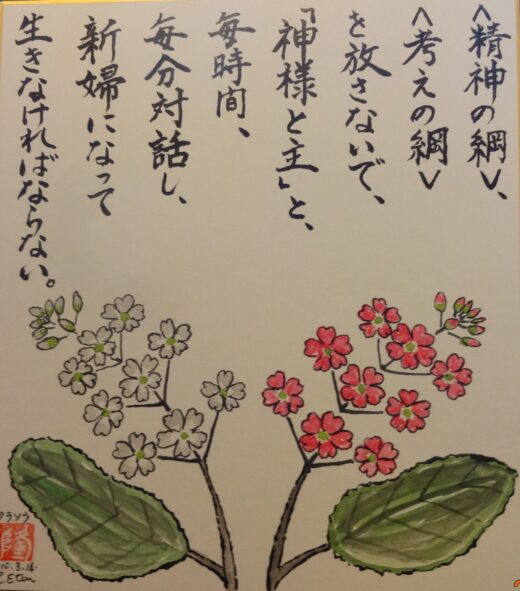 <精神の綱>、
<考えの綱>
を放さないで、
「神様と主」と、
毎時間、
毎分対話し、
新婦になって
生きなければならない。
隆